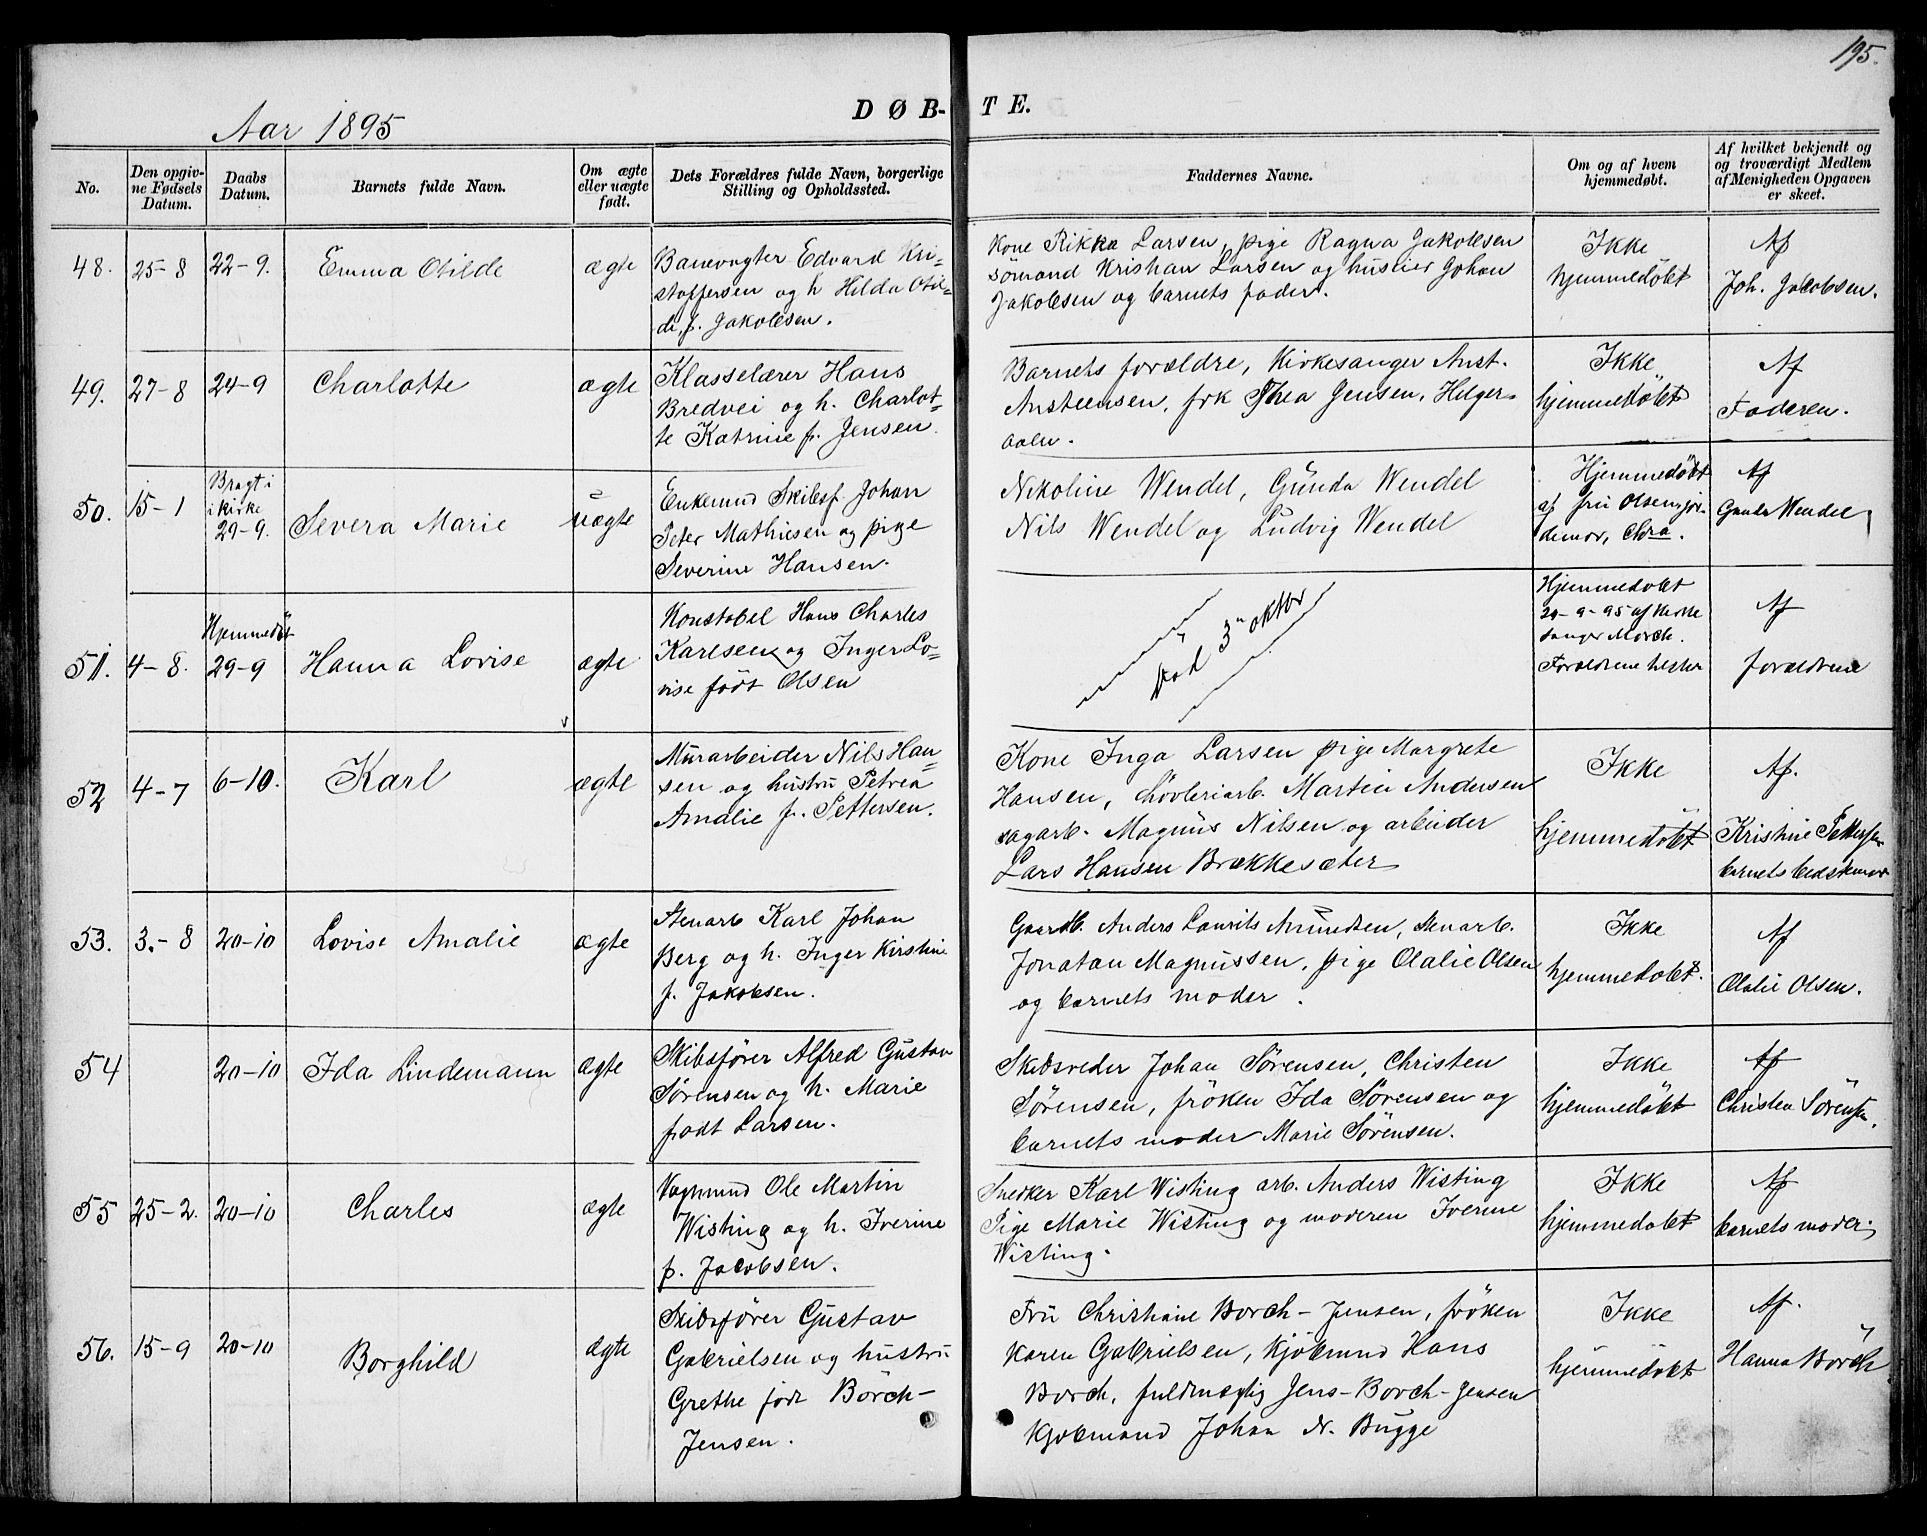 195.
DØB-TE.
Aar 1895
No.
Den opgiv-
ne Fødsels
Datum.
Daabs
Datum.
Barnets fulde Navn.
Om ægte
eller uægte
født.
Dets Forældres fulde Navn, borgerlige
Stilling og Opholdssted.
Faddernes Navne.
Om og af hvem
hjemmedøbt.
Af hvilket bekjendt og
og troværdigt Medlem
af Menigheden Opgaven
er skeet.
48.
25-8
22-9.
Emma Otilde
ægte
Banevogter Edvard Kri-
stoffersen og h Hilda Otil=
de, f. Jakobsen.
Kone Rikka Larsen, pige Ragna Jakobsen
sömand Kristian Larsen og huseier Johan
Jakobsen og barnets fader.
Ikke
hjemmedöbt
Af
Joh. Jacobsen.
49.
27-8
24-9
Charlotte
ægte
Klasselærer Hans
Bredvei og h. Charlot=
te Katrine f. Jensen.
Barnets forældre, Kirkesanger Anst.
Ansteensen, frk Thea Jensen, Helger-
aaen.
Ikke
hjemmedöbt
Af
Faderen.
50.
15-1
Bragt i
i kirke
29-9.
Severa Marie
uægte
Enkemand Skibsf. Johan
Peter Mathiesen og pige
Severine Hansen.
Nikoline Wendel, Gunda Wendel
Nils Wendel og Ludvig Wendel
Hjemmedöbt
af fru Olsen, jor-
demor, Chra.
Af
Gunda Wendel
51.
4-8.
Hjemmedöbt
29-9
Hanna Lovise
ægte
Konstabel Hans Charles
Karlsen og Inger Lo-
vise födt Olsen
Död 3" oktbr
Hjemmedöbt
29-9-95 af Kirke
sanger Mörch.
Forældrene
Af
forældrene
52
4-7
6-10.
Karl
ægte
Murarbeider Nils Han=
sen og hustru Petrea
Amalie f. Pettersen.
Kone Inga Larsen pige Margrete
Hansen, Hövleriarb. Martin Andersen
sagarb. Magnus Nilsen og arbeider
Lars Hansen Brækkesæter
Ikke
hjemmedöbt
Af.
Kristine Pettersen
barnets bedstemor
53.
3.-8
20-10
Lovise Amalie
ægte
Stenarb Karl Johan
Berg og h. Inger Kirstine
f. Jakobsen.
Gaardb. Anders Laurits Amundsen, Stenarb.
Jonatan Magnussen, pige Olalie Olsen
og barnets moder.
Ikke
hjemmedöbt.
Af
Olalie Olsen.
54
20-10
Ida Lindemann
Ægte
Skibsförer Alfred Gustav
Sørensen og h. Marie
född Larsen.
Skibsreder Johan Sørensen, Christen
Sørensen, fröken Ida Sørensen og
barnets moder Marie Sørensen.
Ikke
hjemmedöbt
Af
Christen Sörensen.
55
25-2.
20-10
Charles
ægte
Vognmand Ole Martin
Wisting og h. Iverine
f. Jacobsen.
Snedker Karl Wisting arb. Anders Wisting
Pige Marie Wisting og moderen Iverine
Wisting.
Ikke
hjemmedöbt
Af
barnets moder
56.
15-9
20-10
Borghild
Ægte
Skibsfører Gustav
Gabrielsen og hustru
Grethe födt Borch-
Jensen.
Fru Christiane Borch-Jensen, fröken
Karen Gabrielsen, Kjöbmand Hans
Borch, fuldmægtig Jens-Borch-Jensen
Kjöbmand Johan N. Bugge
Ikke
hjemmedöbt
Af.
Hanna Borch